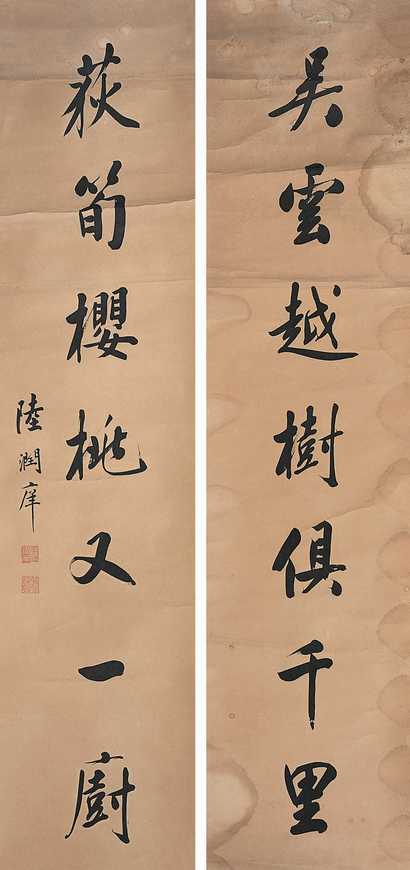 吴雲越樹俱千里
荻筍櫻桃又一廚
陸潤庠